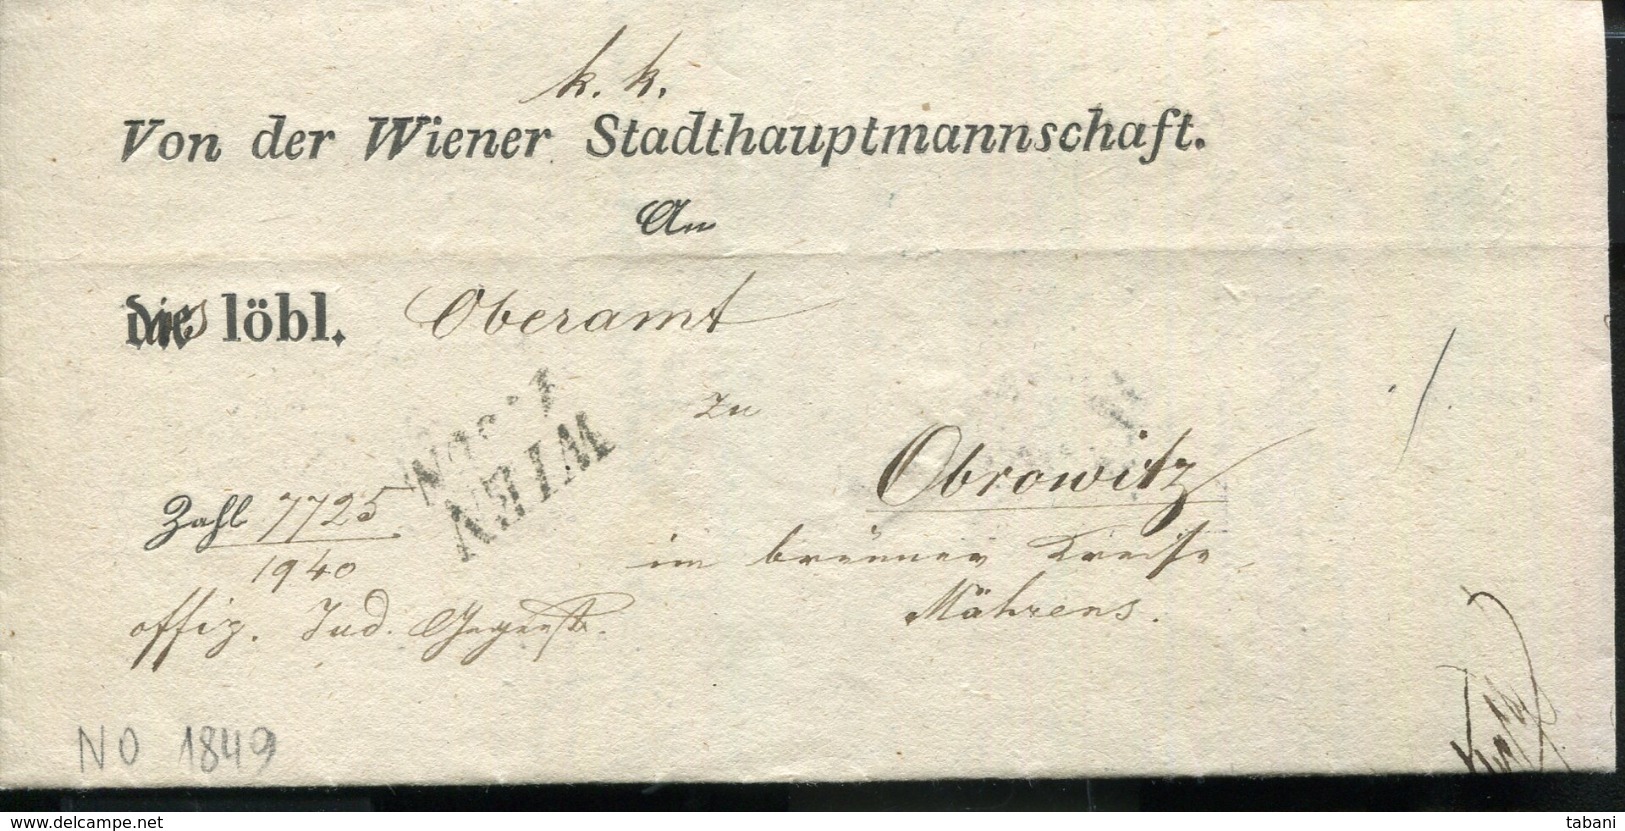 k. k.
Von der Wiener Stadthauptmannschaft.
An
das löbl. Oberamt
zu
WIEN
Obrowitz
Zahl 7725
1940
im brünner Kreise
Mährens.
offiz. Jud. Gegenst.
NO 1849
www.delcampe.net
tabani